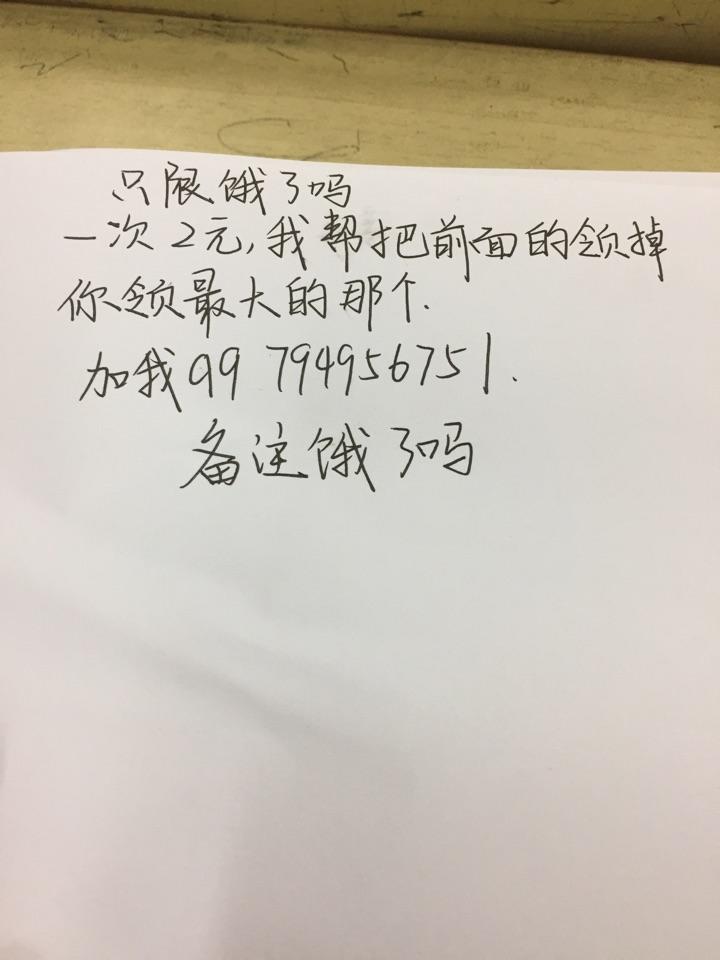 只限饿了吗
一次2元,我帮把前面的领掉
你领最大的那个.
加我qq 794956751.
备注饿了吗